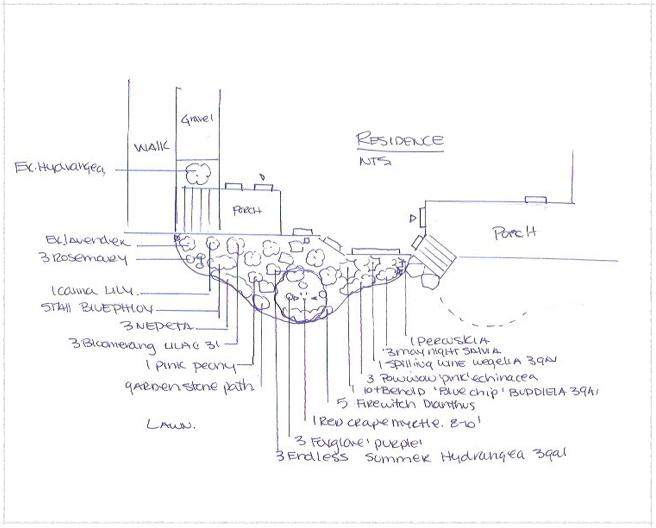 Gravel
WALK
RESIDENCE
NTS
Ex. Hydrangea
PORCH
PORCH
Ex. lavender
3 Rosemary
1 canna LILY
3 NEPETA
3 Bloomerang LILAC 3'
1 pink peony
GARDEN stone path
LAWN.
3 may night SALVIA
1 Spilling WINE wegelia 3GAl
3 Powwow 'pink' echinacea
'Blue chip' BUDDLEIA 3GAl
5 Firewitch Dianthus
1 Red crape myrtle. 8-10'
3 Foxglove 'purple'
3 Endless Summer Hydrangea 3gal